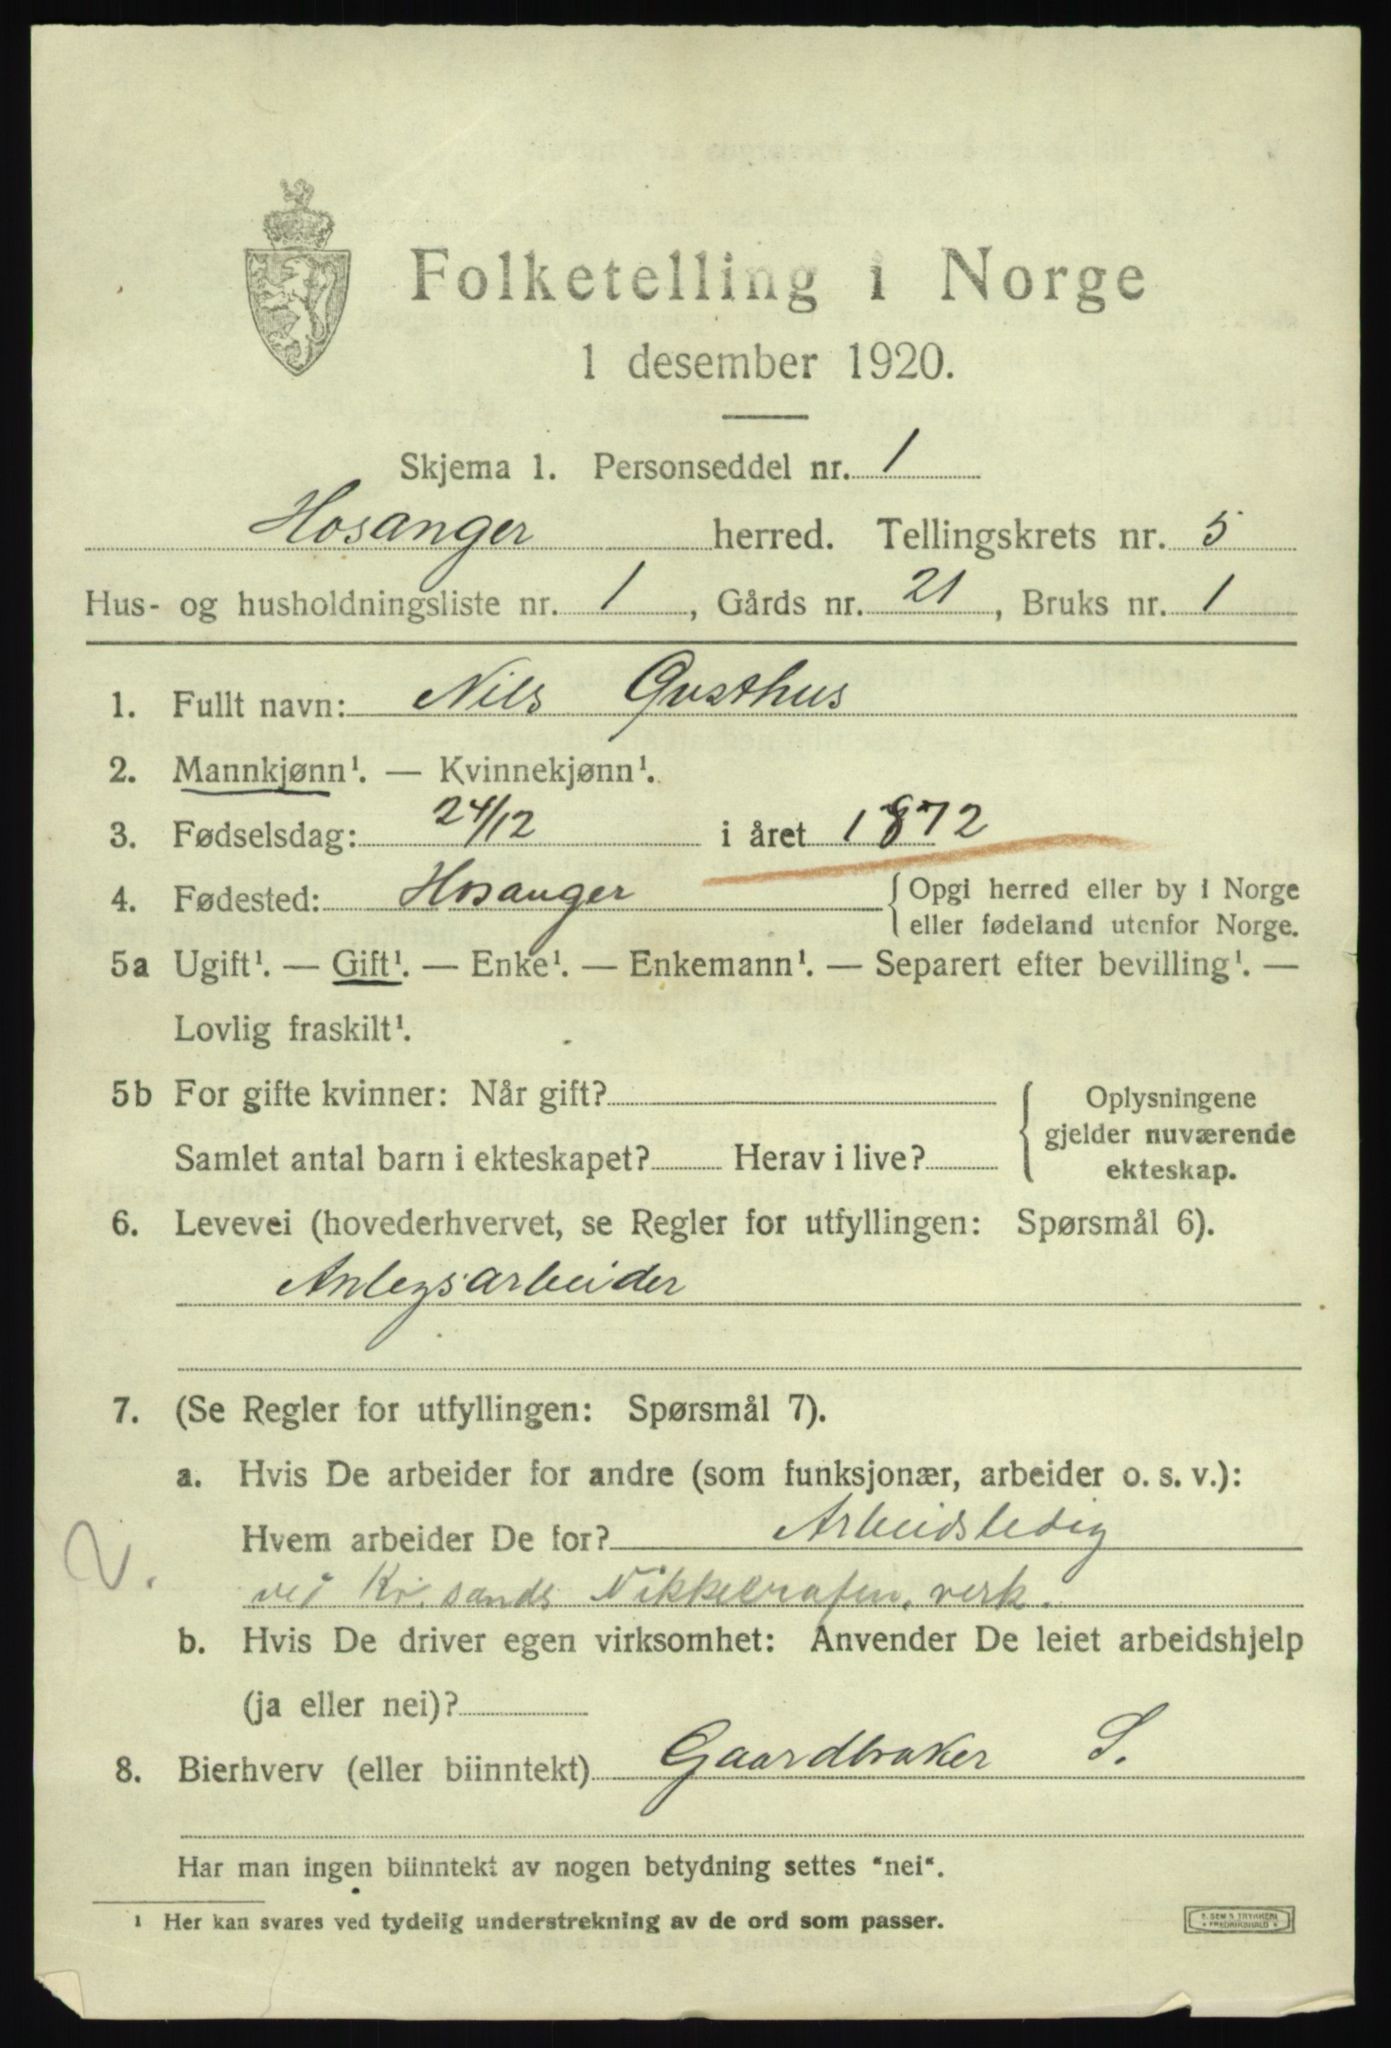 Folketelling i Norge
1 desember 1920.
Skjema 1. Personseddel nr. 1
Hosanger herred. Tellingskrets nr. 5
Hus- og husholdningsliste nr. 1, Gårds nr. 21, Bruks nr. 1
1. Fullt navn: Nils Qvsthus
2. Mannkjønn¹. — Kvinnekjønn¹.
3. Fødselsdag: 24/12 i året 1872
4. Fødested: Hosanger { Opgi herred eller by i Norge
eller fødeland utenfor Norge.
5a Ugift¹. — Gift¹. — Enke¹. — Enkemann¹. — Separert efter bevilling¹. —
Lovlig fraskilt¹.
5b For gifte kvinner: Når gift? { Oplysningene
gjelder nuværende
Samlet antal barn i ekteskapet? Herav i live? ekteskap.
6. Levevei (hovederhvervet, se Regler for utfyllingen: Spørsmål 6).
Anlegsarbeider
7. (Se Regler for utfyllingen: Spørsmål 7).
a. Hvis De arbeider for andre (som funksjonær, arbeider o. s. v.):
Hvem arbeider De for? Arbeidsledig
2. ved Kr.sands Nikkelrafin. verk.
b. Hvis De driver egen virksomhet: Anvender De leiet arbeidshjelp
(ja eller nei)?
8. Bierhverv (eller biinntekt) Gaardbruker S.
Har man ingen biinntekt av nogen betydning settes "nei".
¹ Her kan svares ved tydelig understrekning av de ord som passer.